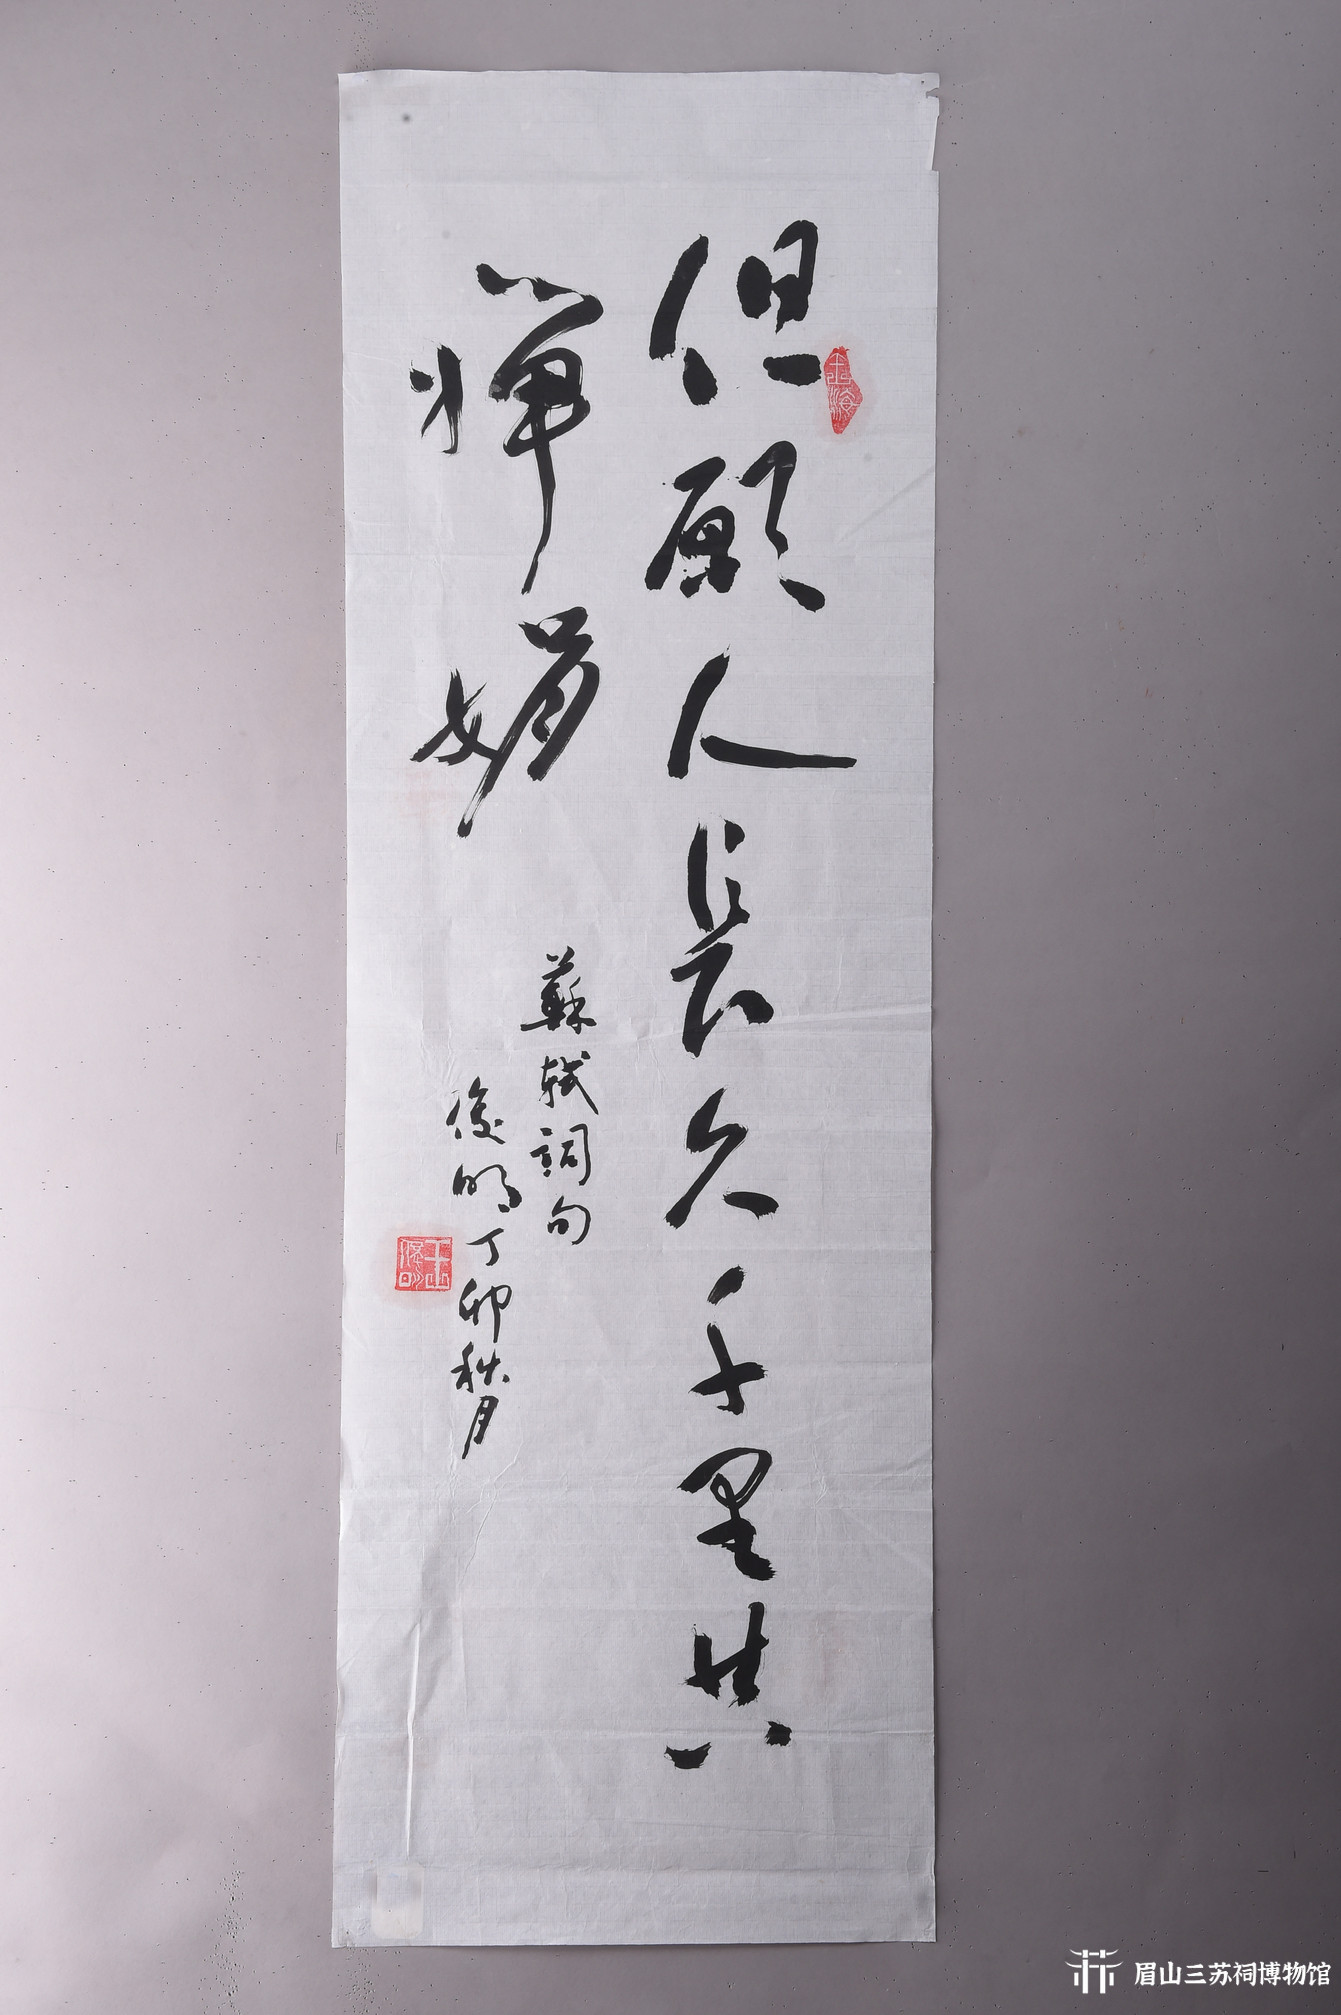 但願人長久千里共
嬋娟
蘇軾詞句
俊明丁卯秋月
眉山三苏祠博物馆